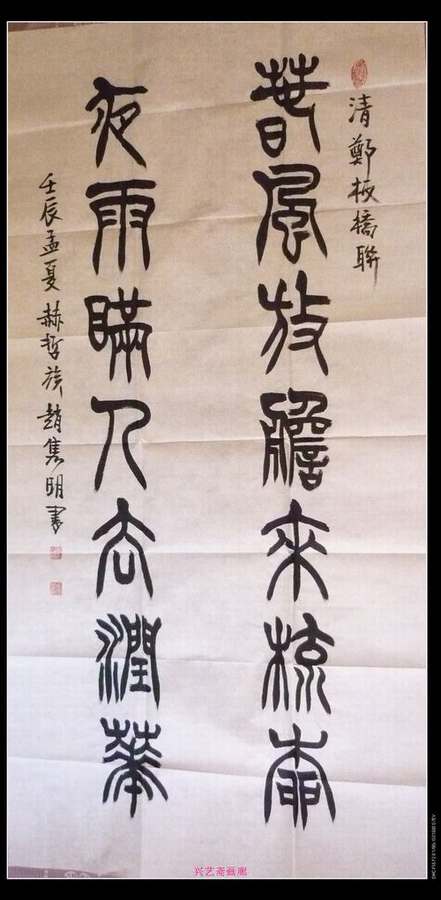 清鄭板橋聯
春風放膽來梳柳
夜雨瞞人去潤華
壬辰孟夏赫哲族趙雋明書
兴艺斋